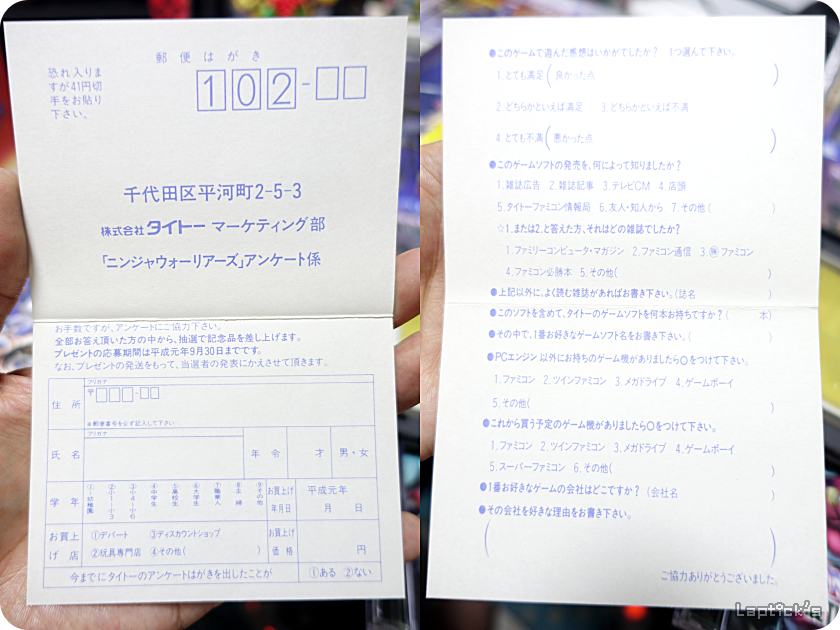 郵便はがき
恐れ入りま
すが41円切
手をお貼り
下さい。
102-
千代田区平河町2-5-3
株式会社タイトー マーケティング部
「ニンジャウォーリアーズ」アンケート係
お手数ですが、アンケートにご協力下さい。
全部お答え頂いた方の中から、抽選で記念品を差し上げます。
プレゼントの応募期間は平成元年9月30日までです。
なお、プレゼントの発送をもって、当選者の発表にかえさせて頂きます。
フリガナ
住所 〒 -
※郵便番号を必ず記入して下さい
フリガナ
氏名 年令 才 男・女
学年 ①幼稚園 ②小1~小3 ③小4~小6 ④中学生 ⑤高校生 ⑥大学生 ⑦職業人 ⑧主婦 ⑨その他 お買上げ年月日 平成元年 月 日
お買上げ店 ①デパート ③ディスカウントショップ
②玩具専門店 ④その他( ) お買上げ価格 円
今までにタイトーのアンケートはがきを出したことが ①ある ②ない
●このゲームで遊んだ感想はいかがでしたか? 1つ選んで下さい。
1.とても満足(良かった点 )
2.どちらかといえば満足 3.どちらかといえば不満
4.とても不満(悪かった点 )
●このゲームソフトの発売を、何によって知りましたか?
1.雑誌広告 2.雑誌記事 3.テレビCM 4.店頭
5.タイトーファミコン情報局 6.友人・知人から 7.その他( )
☆1.または2.と答えた方、それはどの雑誌でしたか?
1.ファミリーコンピュータ・マガジン 2.ファミコン通信 3.㊕ファミコン
4.ファミコン必勝本 5.その他( )
●上記以外に、よく読む雑誌があればお書き下さい。(誌名 )
●このソフトを含めて、タイトーのゲームソフトを何本お持ちですか?( 本)
●その中で、1番お好きなゲームソフト名をお書き下さい。( )
●PCエンジン以外にお持ちのゲーム機がありましたら○をつけて下さい。
1.ファミコン 2.ツインファミコン 3.メガドライブ 4.ゲームボーイ
5.その他( )
●これから買う予定のゲーム機がありましたら○をつけて下さい。
1.ファミコン 2.ツインファミコン 3.メガドライブ 4.ゲームボーイ
5.スーパーファミコン 6.その他( )
●1番お好きなゲームの会社はどこですか? (会社名 )
●その会社を好きな理由をお書き下さい。
( )
ご協力ありがとうございました。
Laptick's